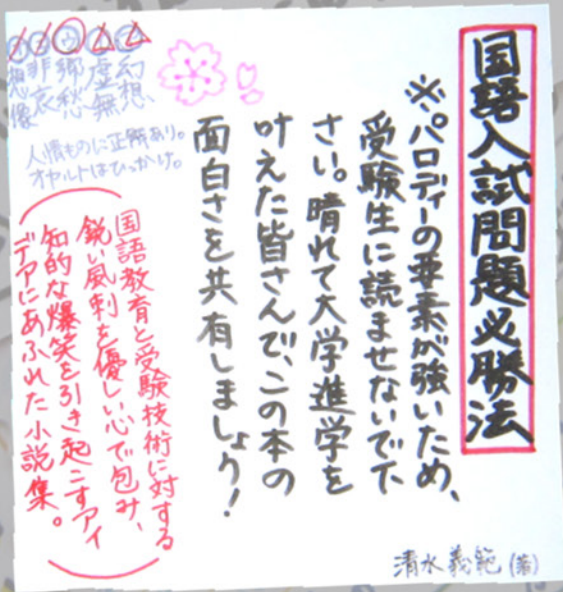 国語入試問題必勝法
※パロディーの要素が強いため、
受験生に読ませないで下
さい。晴れて大学進学を
叶えた皆さんで、この本の
面白さを共有しましょう!
幻想
虚無
郷愁
悲哀
想像
人情ものに正解あり。
オカルトはひっかけ。
国語教育と受験技術に対する
鋭い風刺を優しい心で包み、
知的な爆笑を引き起こすアイ
デアにあふれた小説集。
清水義範(著)